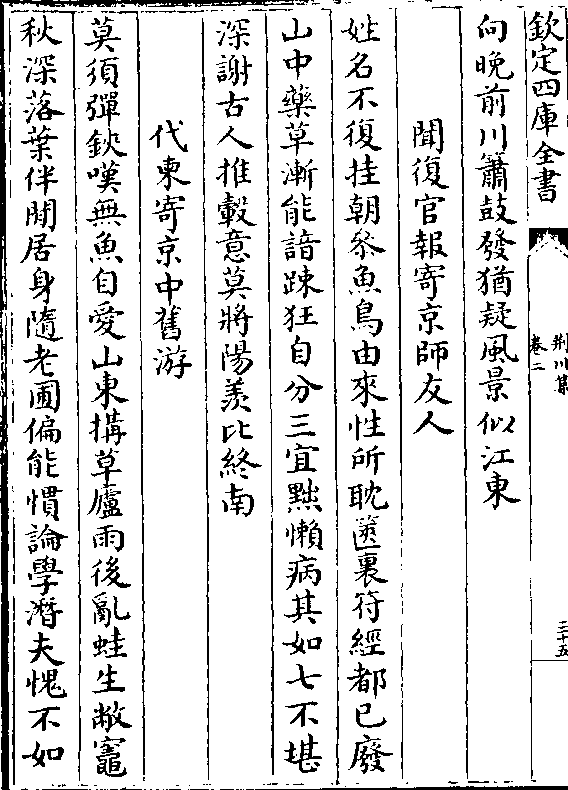 欽定四庫全書
荆川集
卷二
三十五
向晚前川簫鼓發猶疑風景似江東
聞復官報寄京師友人
姓名不復挂朝叅魚鳥由來性所耽篋裏符經都已廢
山中藥草漸能諳踈狂自分三宜黜懶病其如七不堪
深謝古人推轂意莫將陽羨比終南
代柬寄京中舊游
莫須彈鋏嘆無魚自愛山東搆草廬雨後亂蛙生敝竈
秋深落葉伴閒居身隨老圃偏能慣論學潛夫愧不如